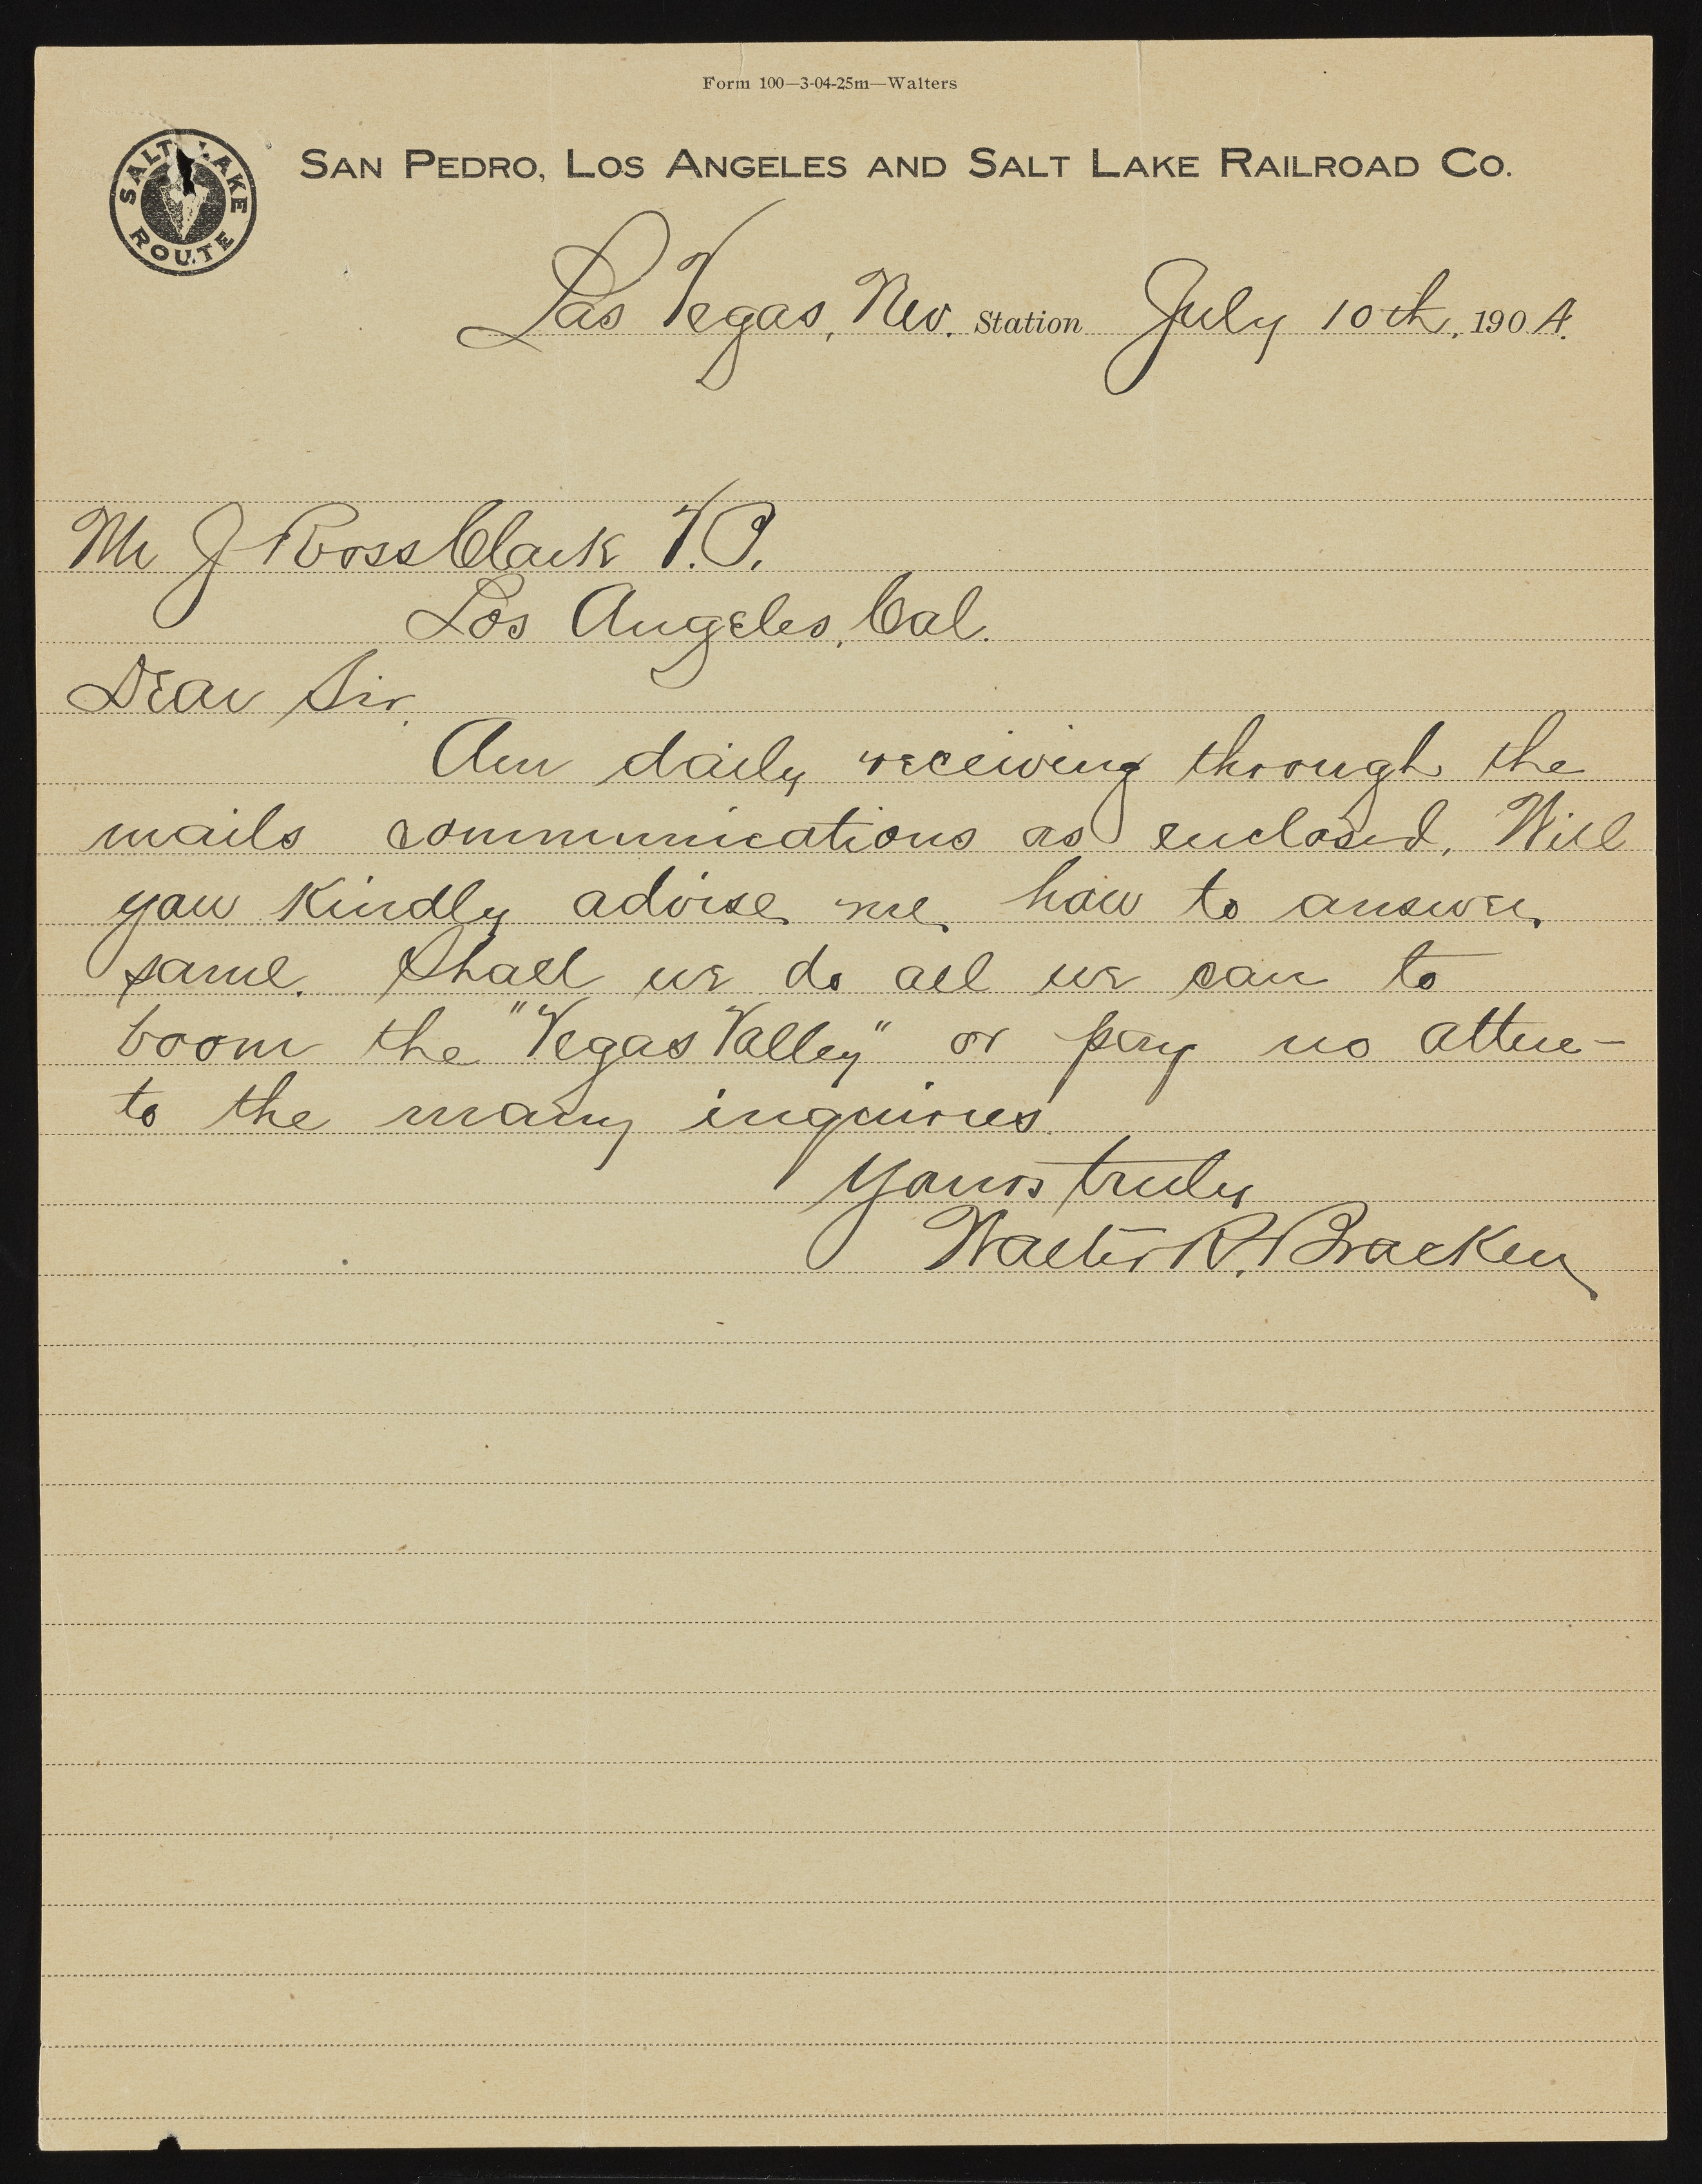 Form 100—3-04-25m—Walters
SALT LAKE ROUTE
SAN PEDRO, LOS ANGELES AND SALT LAKE RAILROAD CO.
Las Vegas, Nev. Station July 10th, 1904.
Mr J Ross Clark V.P.
Los Angeles, Cal.
Dear Sir.
Am daily receiving through the
mails communications as enclosed. Will
you kindly advise me how to answer
same. Shall we do all we can to
boom the "Vegas Valley" or pay no atten-
to the many inquiries.
Yours truly
Walter R. Bracken